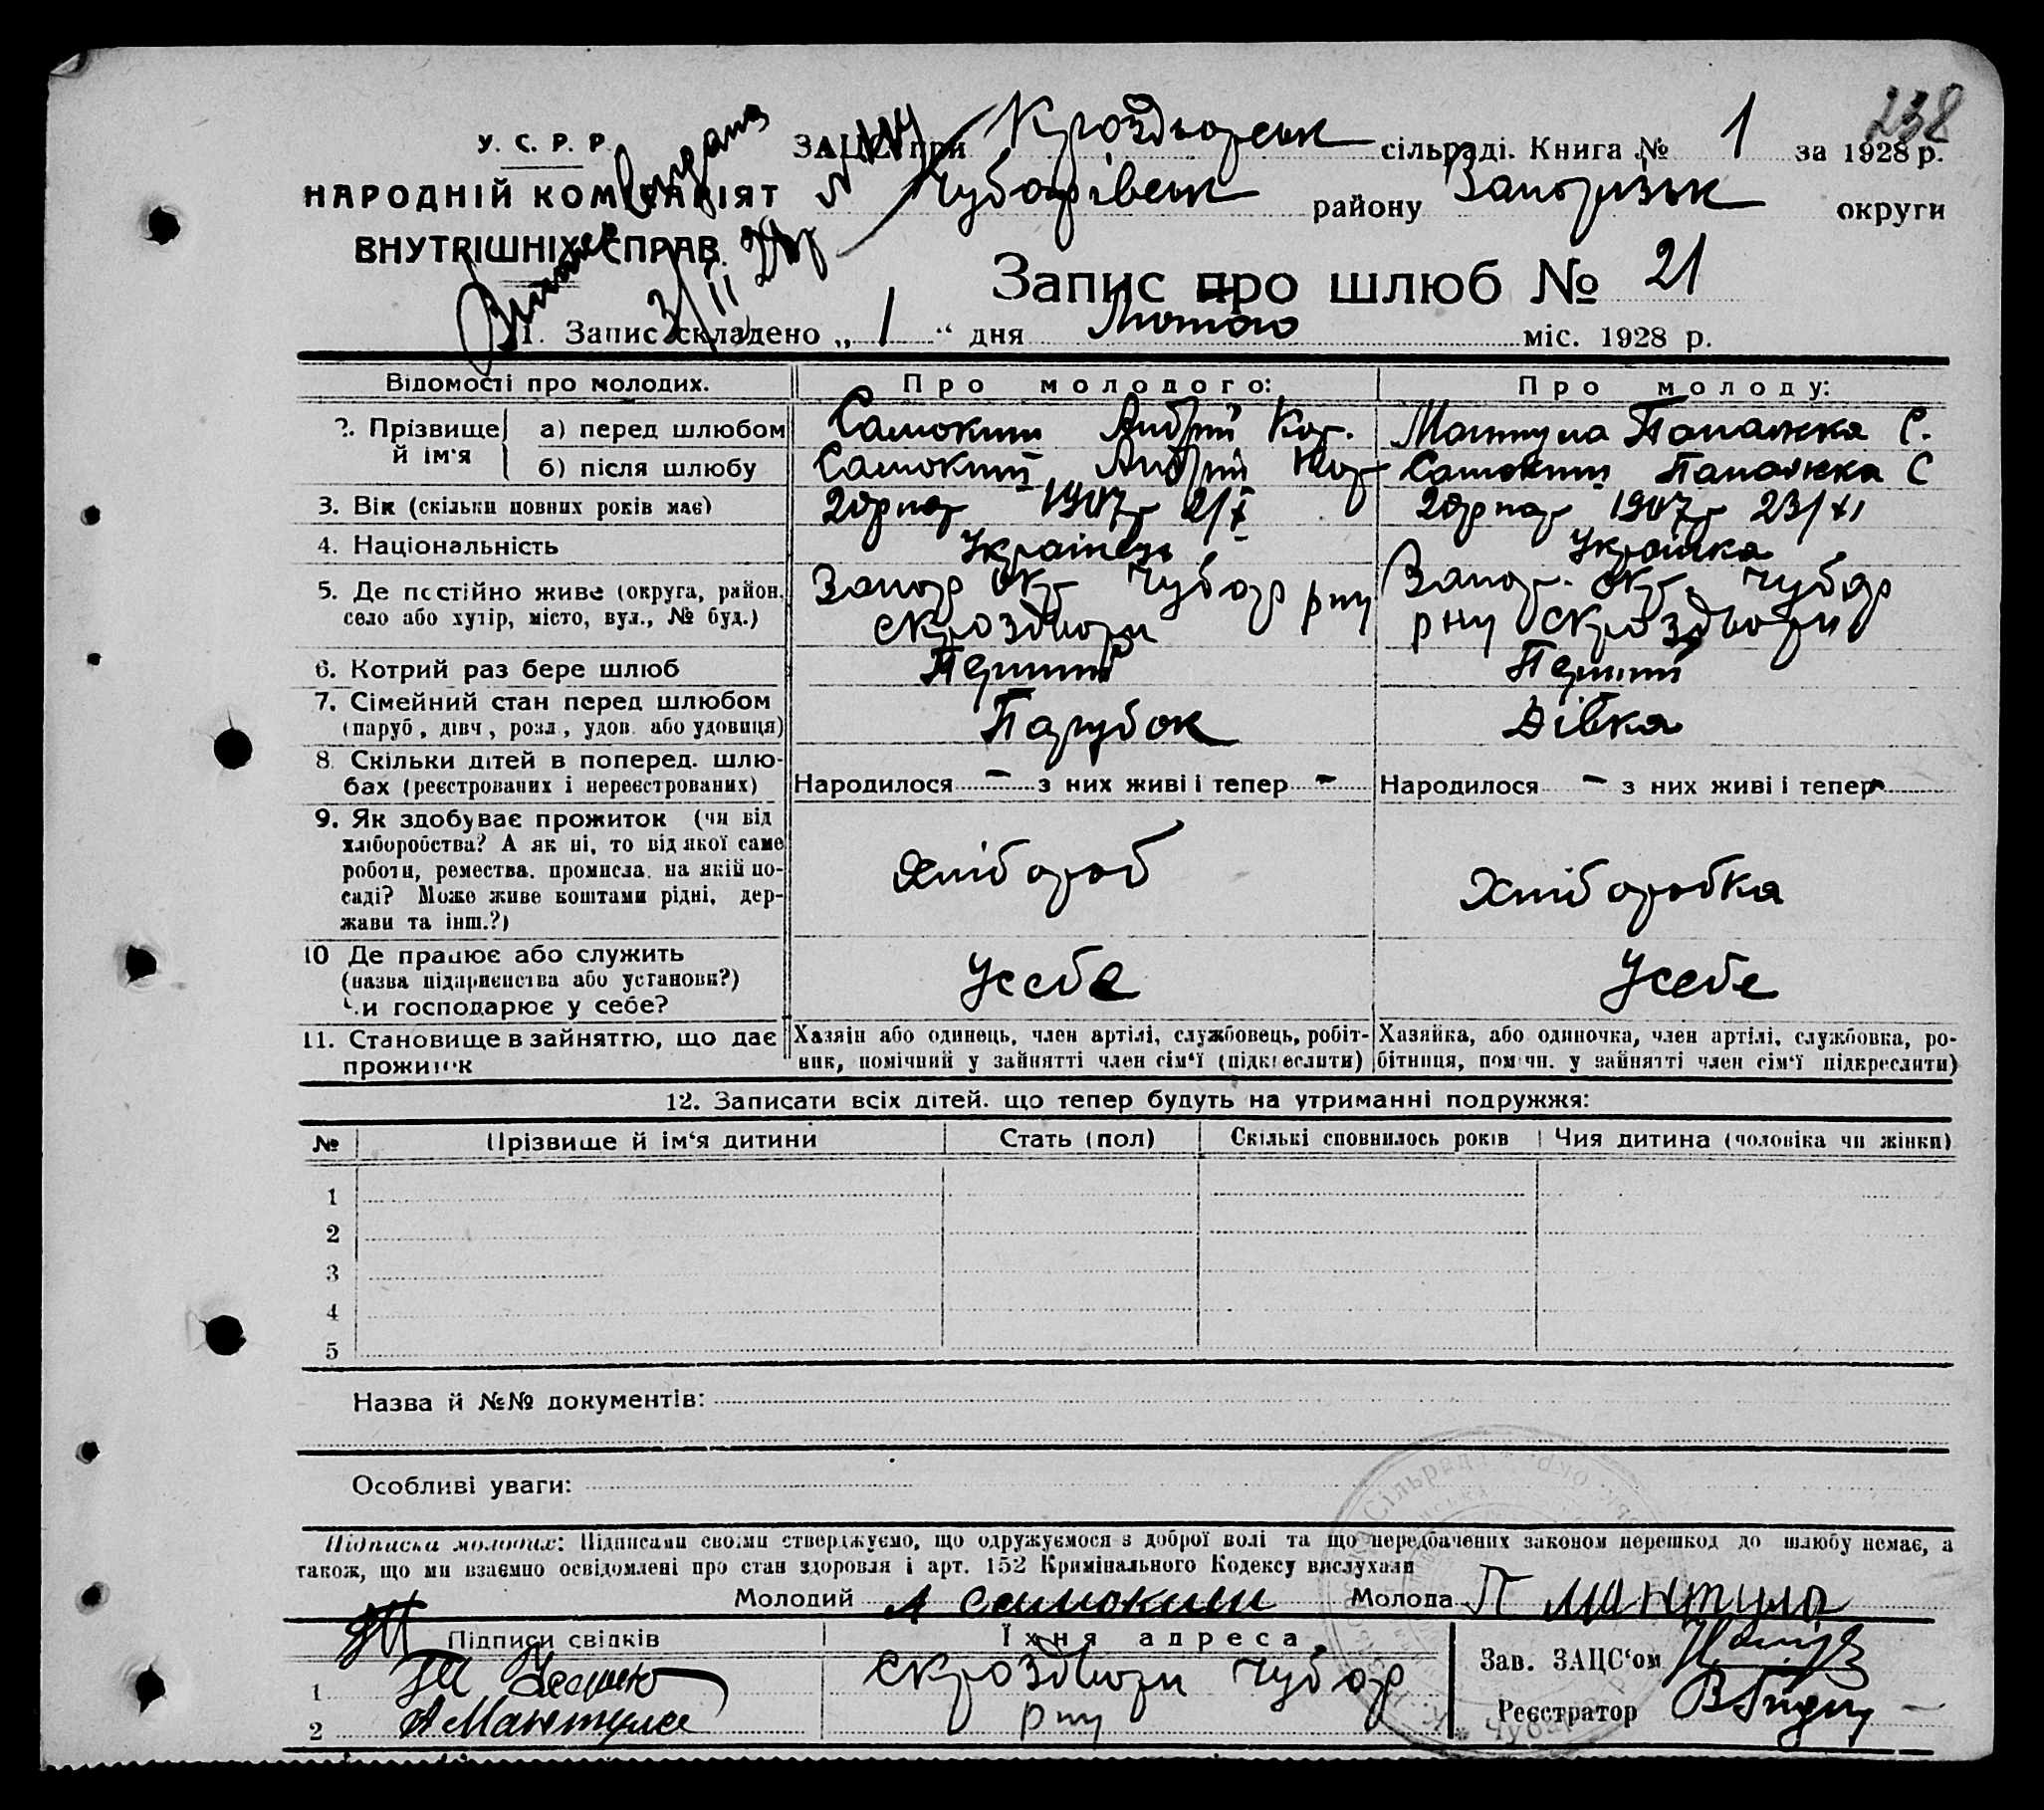 238
У. С. Р. Р.
НАРОДНІЙ КОМІСАРІЯТ
ВНУТРІШНІХ СПРАВ.
ЗАЦС при Кроздворськ сільраді. Книга № 1 за 1928 р.
Чубарівськ району Запорізьк округи
Запис про шлюб № 21
3/II 28р
1. Запис складено „ 1 “ дня Лютого міс. 1928 р.
Відомості про молодих. Про молодого: Про молоду:
2. Прізвище й ім'я
а) перед шлюбом Самокиш Андрій Кор. Мантула Палажка С.
б) після шлюбу Самокиш Андрій Кор Самокиш Палажка С
3. Вік (скільки повних років має) 20р 1907р 2/X 20р 1907р 23/XI
4. Національність Українець Українка
5. Де постійно живе (округа, район, Запор окр Чубар рну Запор. окр. Чубар
село або хутір, місто, вул., № буд.) с Кроздвори рну с Кроздвори
6. Котрий раз бере шлюб Перший Перший
7. Сімейний стан перед шлюбом Парубок Дівка
(паруб., дівч., розл., удов. або удовиця)
8. Скільки дітей в поперед. шлю-
бах (реєстрованих і нереєстрованих) Народилося – з них живі і тепер – Народилося – з них живі і тепер –
9. Як здобуває прожиток (чи від
хліборобства? А як ні, то від якої саме
роботи, ремества, промисла, на якій по- Хлібороб Хлібороbка
саді? Може живе коштами рідні, дер-
жави та інш.?)
10 Де працює або служить
(назва підприємства або установи?) У себе У себе
Чи господарює у себе?
11. Становище в зайняттю, що дає Хазяїн або одинець, член артілі, службовець, робіт- Хазяйка, або одиночка, член артілі, службовка, ро-
прожиток ник, помічний у зайнятті член сім'ї (підкреслити) бітниця, помічн. у зайнятті член сім'ї підкреслити)
12. Записати всіх дітей, що тепер будуть на утриманні подружжя:
№ Прізвище й ім'я дитини Стать (пол) Скількі сповнилось років Чия дитина (чоловіка чи жінки)
1
2
3
4
5
Назва й №№ документів:
Особливі уваги:
Підписка молодих: Підписами своїми стверджуємо, що одружуємося з доброї волі та що передбачених законом перешкод до шлюбу немає, а
також, що ми взаємно освідомлені про стан здоровля і арт. 152 Кримінального Кодексу вислухали
Молодий А Самокиш Молода П Мантула
Підписи свідків Їхня адреса Зав. ЗАЦС'ом
1 с Кроздвори Чубар
2 А Мантула рну Реєстратор